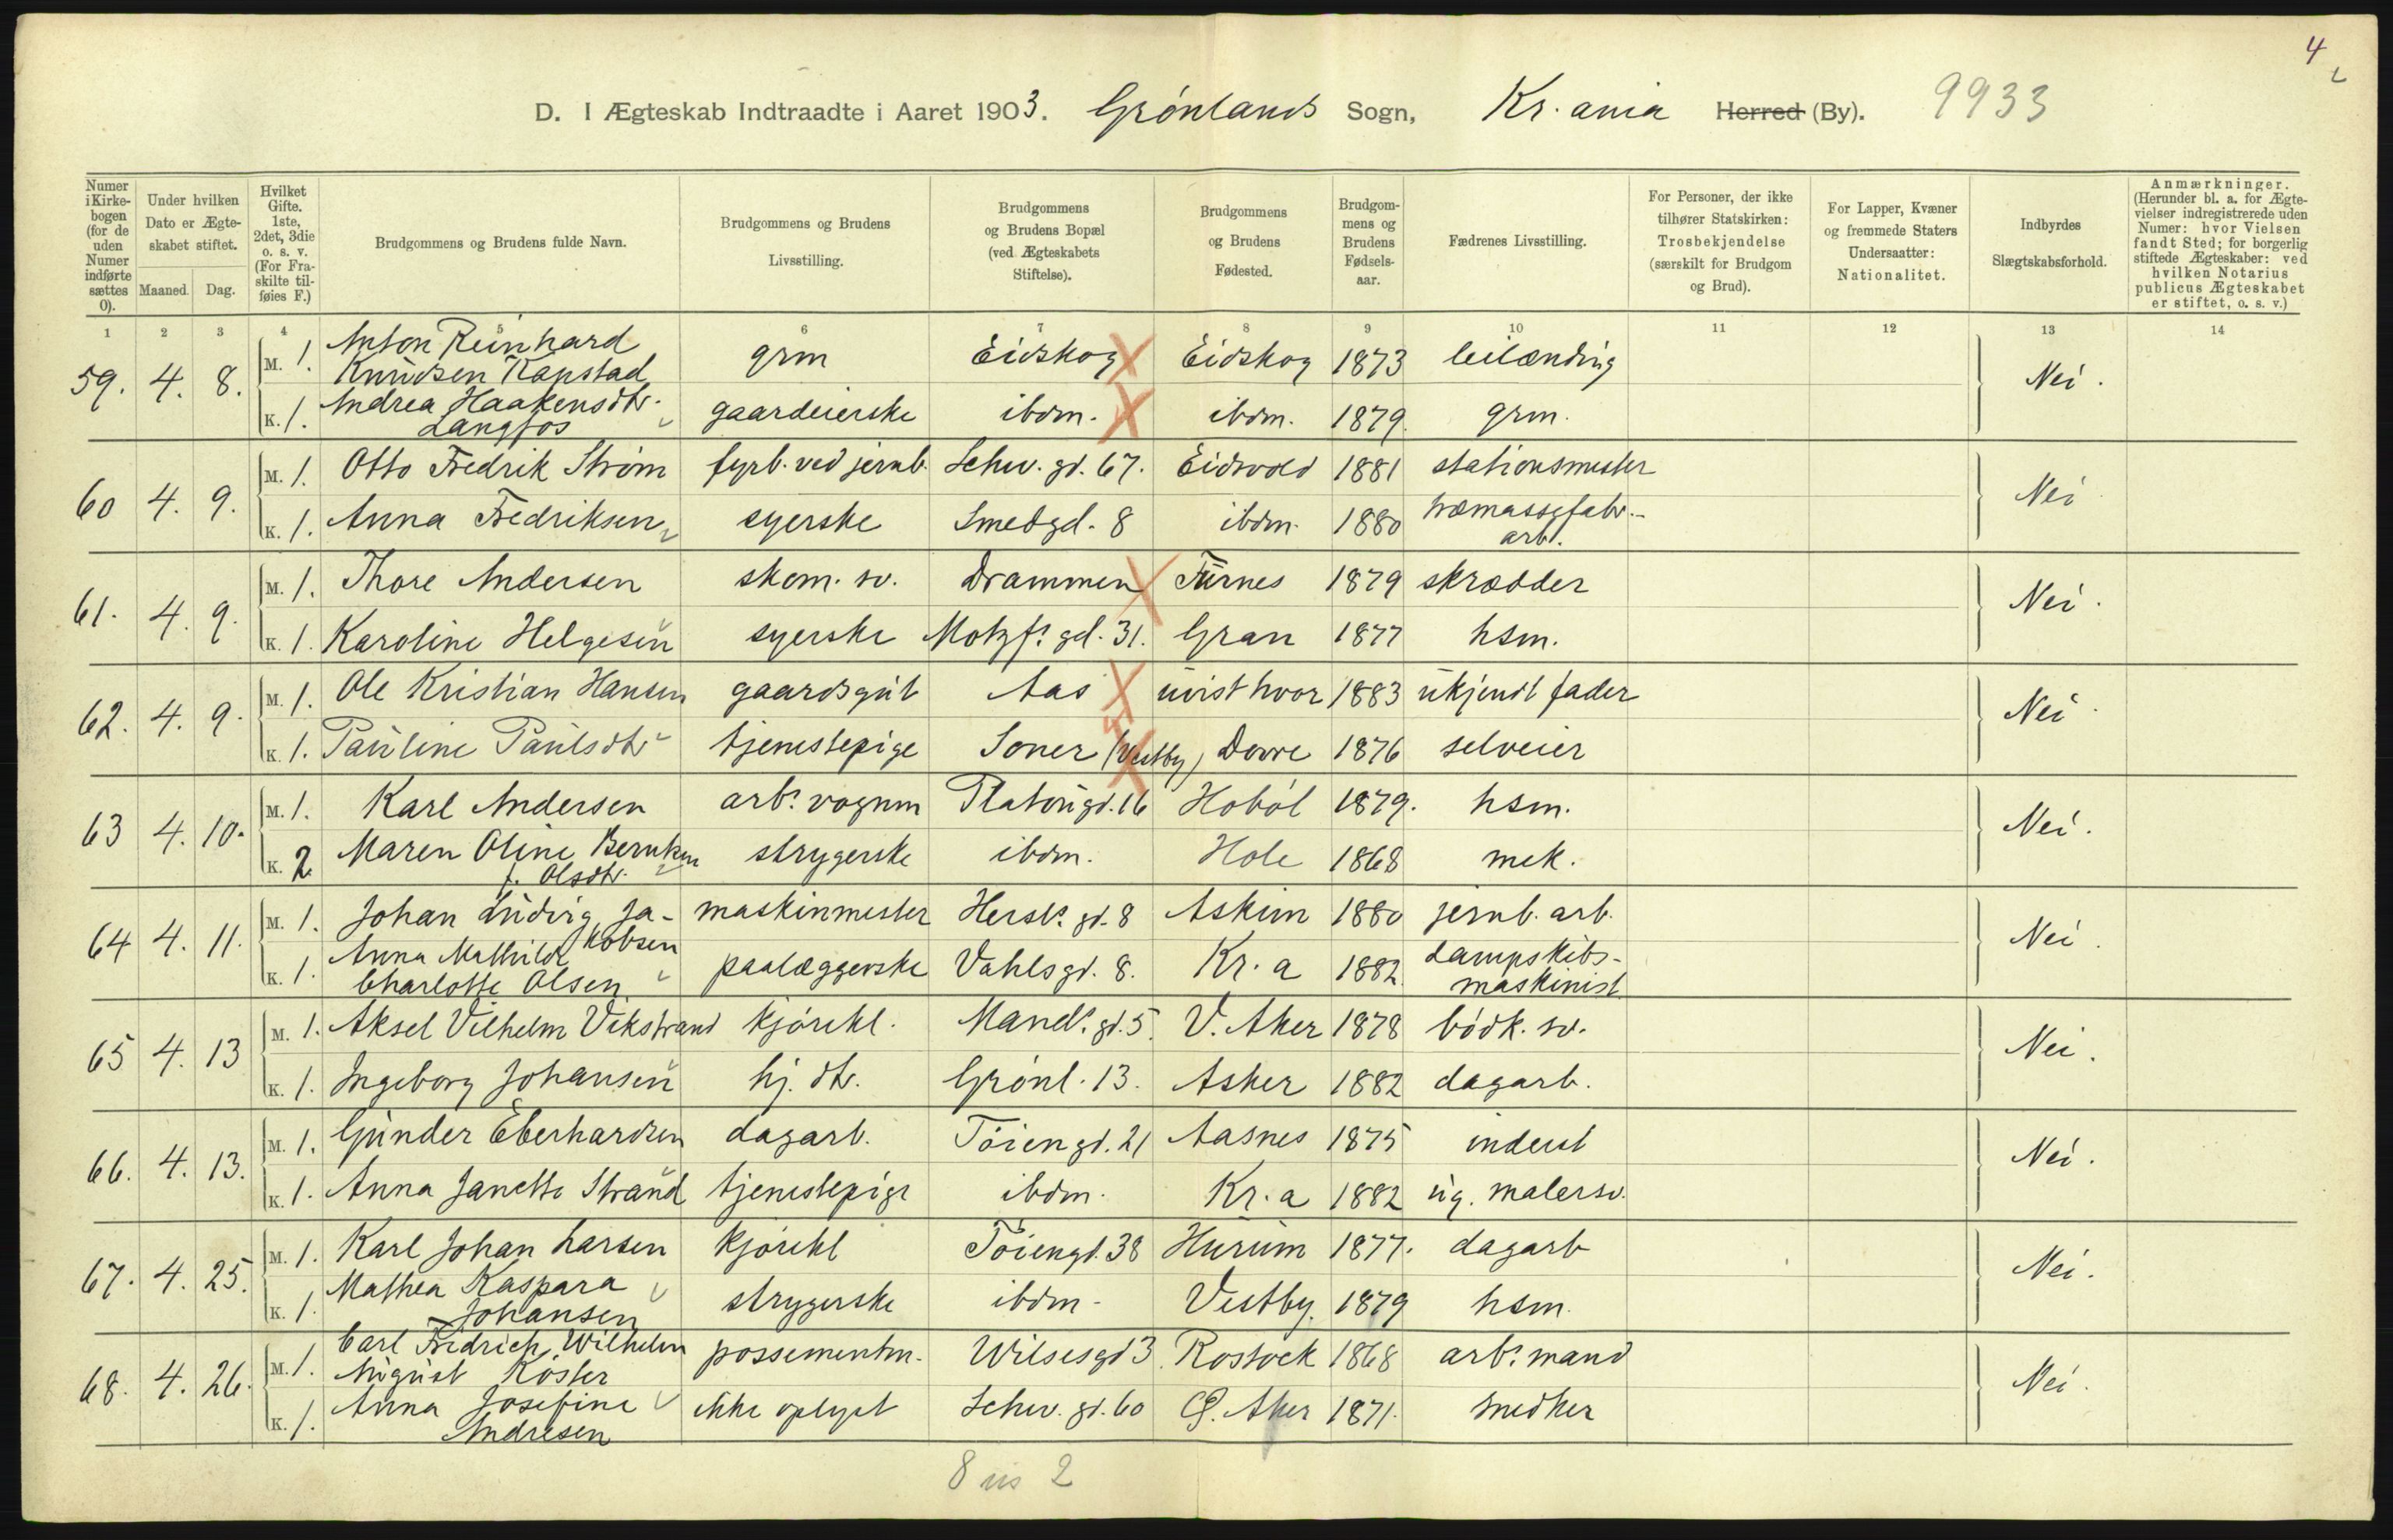 4
D. I Ægteskab Indtraadte i Aaret 1903. Grónlands Sogn, Kr. ania Herred (By). 9933
Numer i Kirke-bogen (for de uden Numer indførte sættes 0).
Under hvilken Dato er Ægte-skabet stiftet.
Maaned. Dag.
Hvilket Gifte. 1ste, 2det, 3die o. s. v. (For Fra-skilte til-føies F.)
Brudgommens og Brudens fulde Navn.
Brudgommens og Brudens Livsstilling.
Brudgommens og Brudens Bopæl (ved Ægteskabets Stiftelse).
Brudgommens og Brudens Fødested.
Brudgom-mens og Brudens Fødsels-aar.
Fædrenes Livsstilling.
For Personer, der ikke tilhører Statskirken: Trosbekjendelse (særskilt for Brudgom og Brud).
For Lapper, Kvæner og fremmede Staters Undersaatter: Nationalitet.
Indbyrdes Slægtskabsforhold.
Anmærkninger. (Herunder bl. a. for Ægte-vielser indregistrerede uden Numer: hvor Vielsen fandt Sted; for borgerlig stiftede Ægteskaber: ved hvilken Notarius publicus Ægteskabet er stiftet, o. s. v.)
1 2 3 4 5 6 7 8 9 10 11 12 13 14
59. 4. 8. M. 1. Anton Reinhard Knudsen Rapstad grm Eidskog Eidskog 1873 leilænding Nei.
K. 1. Andrea Haakensdtr. Langfos gaardeierske ibdm. ibdm. 1879. grm.
60 4. 9. M. 1. Otto Fredrik Strøm fyrb. ved jernb. Schw. gd. 67. Eidsvold 1881 stationsmester Nei
K. 1. Anna Fredriksen syerske Smedgd. 8 ibdm. 1880 træmassefabr.- arb.
61. 4. 9. M. 1. Thore Andersen skom. sv. Drammen Furnes 1879 skrædder Nei.
K. 1. Karoline Helgesen syerske Motzf.s gd. 31. Gran 1877 hsm.
62. 4. 9. M. 1. Ole Kristian Hansen gaardsgut Aas uvist hvor 1883 ukjendt fader Nei
K. 1. Pauline Paulsdtr tjenestepige Soner (Vestby) Dovre 1876 selveier
63 4. 10. M. 1. Karl Andersen arb.s vognm Platougd. 16 Hobøl 1879. hsm. Nei.
K. 2. Maren Oline Berntsen f. Olsdtr. strygerske ibdm. Hole 1868 mek.
64 4. 11. M. 1. Johan Ludvig Ja-kobsen maskinmester Hersl.s gd. 8 Askim 1880 jernb. arb. Nei.
K. 1. Anna Mathilde Charlotte Olsen paalæggerske Vahlsgd. 8. Kr. a 1882. dampskibs-maskinist
65 4. 13 M. 1. Aksel Vilhelm Vikstrand kjørekl. Mand.s gd. 5. V. Aker 1878 bødk. sv. Nei.
K. 1. Ingeborg Johansen hj. dtr. Grønl. 13. Asker 1882 dagarb.
66. 4. 13. M. 1. Gunder Eberhardsen dagarb. Tøiengd. 21 Aasnes 1875 inderst Nei.
K. 1. Anna Janette Strand tjenestepige ibdm. Kr. a 1882 ug. malersv.
67. 4. 25. M. 1. Karl Johan Larsen kjørekl Tøiengd. 38 Hurum 1877. dagarb Nei.
K. 1. Mathea Kaspara Johansen strygerske ibdm. Vestby. 1879 hsm.
68. 4. 26. M. 1. Carl Fridrich Wilhelm August Köster possementm. Wilsesgd 3. Rostock 1868 arb.s mand Nei.
K. 1. Anna Josefine Andresen ikke oplyst Schw. gd. 60 Ø. Aker 1871. snedker
8 us 2